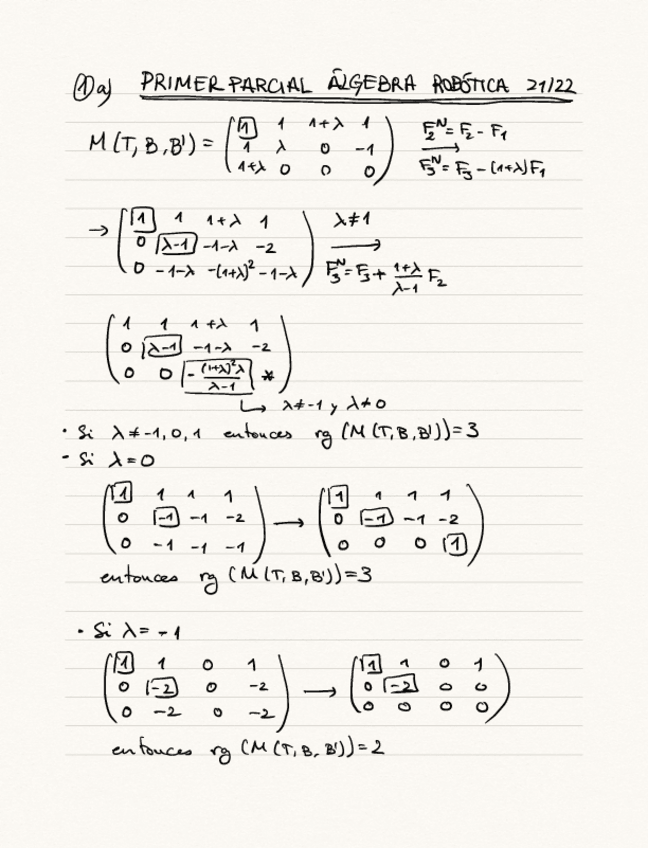 1 a) PRIMER PARCIAL ÁLGEBRA ROBÓTICA 21/22
M(T, B, B') = ( 1 1 1+λ 1 F₂ᴺ = F₂ - F₁
1 λ 0 -1
1+λ 0 0 0 ) F₃ᴺ = F₃ - (1+λ)F₁
→ ( 1 1 1+λ 1 λ≠1
0 λ-1 -1-λ -2
0 -1-λ -(1+λ)² -1-λ ) F₃ᴺ = F₃ + (1+λ)/(λ-1) F₂
( 1 1 1+λ 1
0 λ-1 -1-λ -2
0 0 -(1+λ)²λ/(λ-1) * )
↳ λ≠-1 y λ≠0
· Si λ≠-1, 0, 1 entonces rg (M(T, B, B'))=3
- Si λ=0
( 1 1 1 1 ( 1 1 1 1
0 -1 -1 -2 → 0 -1 -1 -2
0 -1 -1 -1 ) 0 0 0 1 )
entonces rg (M(T, B, B'))=3
· Si λ= -1
( 1 1 0 1 ( 1 1 0 1
0 -2 0 -2 → 0 -2 0 0
0 -2 0 -2 ) 0 0 0 0 )
entonces rg (M(T, B, B'))=2